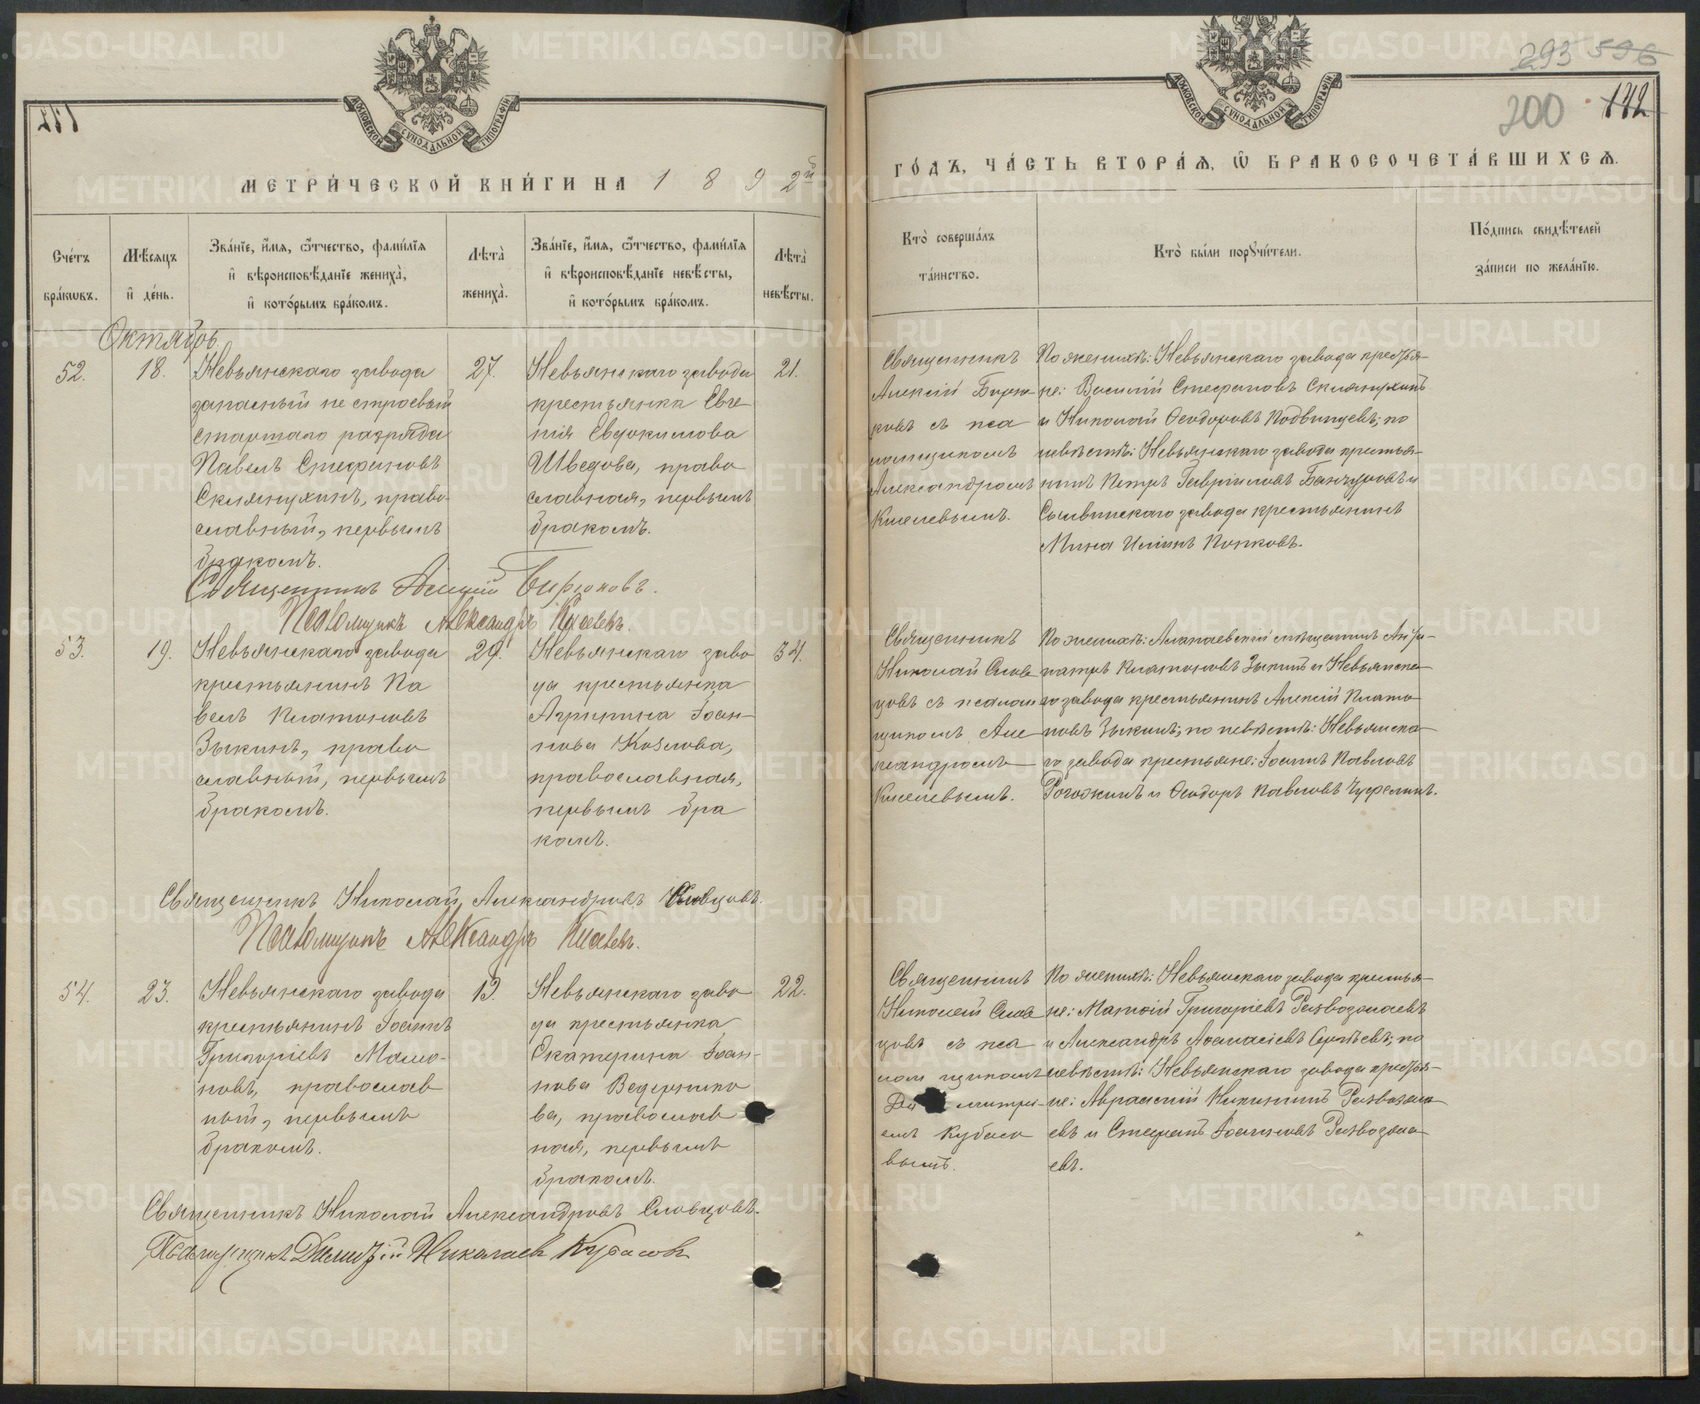 МЕТРИ́ЧЕСКОЙ КНИ́ГИ НА 1892й
Сче́тъ бра́ковъ.
Мѣ́сяцъ и҆ де́нь.
Зва́нїе, и҆́мя, ѻ҆́тчество, фами́лїя и҆ вѣроисповѣ́данїе жениха̀, и҆ кото́рымъ бра́комъ.
Лѣта̀ жениха̀.
Зва́нїе, и҆́мя, ѻ҆́тчество, фами́лїя и҆ вѣроисповѣ́данїе невѣ́сты, и҆ кото́рымъ бра́комъ.
Лѣта̀ невѣ́сты.
Октябрь
52.
18.
Невьянскаго завода
запасный не строевый
старшаго разряда
Павелъ Стефановъ
Склянухинъ, право-
славный, первымъ
бракомъ.
27.
Невьянскаго завода
крестьянка Евге-
нія Евдокимова
Шведова, право
славная, первымъ
бракомъ.
21.
Священникъ Алексій Бирюковъ.
Псаломщикъ Александръ Киселевъ.
53.
19.
Невьянскаго завода
крестьянинъ Па
велъ Платоновъ
Зыкинъ, право
славный, первымъ
бракомъ.
29.
Невьянскаго заво
да крестьянка
Агрипина Іоан-
нова Козлова,
православная,
первымъ бра
комъ.
34.
Священникъ Николай Александровъ Словцовъ.
Псаломщикъ Александръ Киселевъ.
54.
23.
Невьянскаго завода
крестьянинъ Іоаннъ
Григоріевъ Мамо-
новъ, православ
ный, первымъ
бракомъ.
19.
Невьянскаго заво
да крестьянка
Екатерина Іоан-
нова Ведернико
ва, православ
ная, первымъ
бракомъ.
22.
Священникъ Николай Александровъ Словцовъ.
Псаломщикъ Димитрій Николаевъ Кубасовъ
293 596
200 142
ГО́ДЪ, ЧА́СТЬ ВТОРА́Я, Ѽ БРАКОСОЧЕТА́ВШИХСЯ.
Кто̀ соверша́лъ та́инство.
Кто̀ бы́ли порꙋчи́тели.
По́дпись свидѣ́телей за́писи по жела́нїю.
Священникъ
Алексій Бирю-
ковъ съ пса
ломщикомъ
Александромъ
Киселевымъ.
По женихѣ: Невьянскаго завода крестья-
не: Василій Стефановъ Склянухинъ
и Николай Ѳеодоровъ Подвинцевъ; по
невѣстѣ: Невьянскаго завода крестья-
нинъ Петръ Гавріиловъ Банчуровъ и
Сылвинскаго завода крестьянинъ
Мина Илiинъ Попковъ.
Священникъ
Николай Слов
цовъ съ псалом
щикомъ Але
ксандромъ
Киселевымъ.
По женихѣ: Алапаевскій мѣщанинъ Анти-
патръ Платоновъ Зыкинъ и Невьянска-
го завода крестьянинъ Алексій Плато-
новъ Зыкинъ; по невѣстѣ: Невьянска-
го завода крестьяне: Іоаннъ Павловъ
Рогожинъ и Ѳеодоръ Павловъ
Священникъ
Николай Слов
цовъ съ пса
ломщикомъ
митрі-
емъ Кубасо
вымъ.
По женихѣ: Невьянскаго завода крестья-
не: Матѳій Григоріевъ Разводолаевъ
и Александръ Аѳанасіевъ Сергѣевъ; по
невѣстѣ: Невьянскаго завода крестья-
не:
евъ и Стефанъ Іоанновъ
евъ.
METRIKI.GASO-URAL.RU